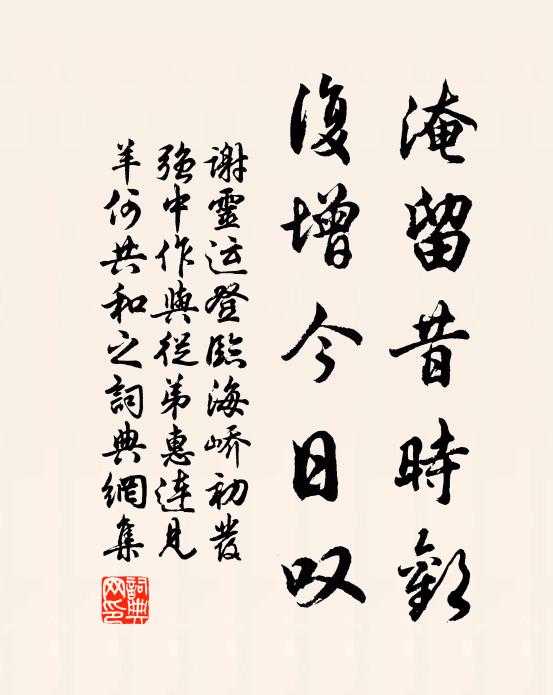 淹留昔時歡
復增今日叹
謝靈运登臨海嶠初發
强中作與從弟惠連見
羊何共和之詞典網集
詞典网印